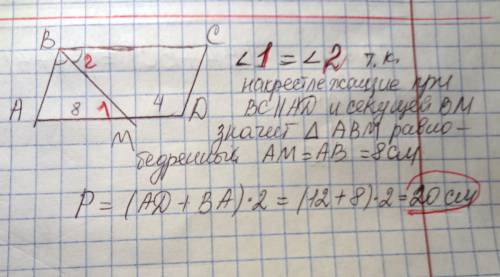 B C
2
∠1 = ∠2 т.к.
накрестлежащие при
BC||AD и секущей BM
A 8 1 4 D
M
значит △ ABM равно-
бедренный AM = AB = 8см
P = (AD + BA)·2 = (12 + 8)·2 = 20 см